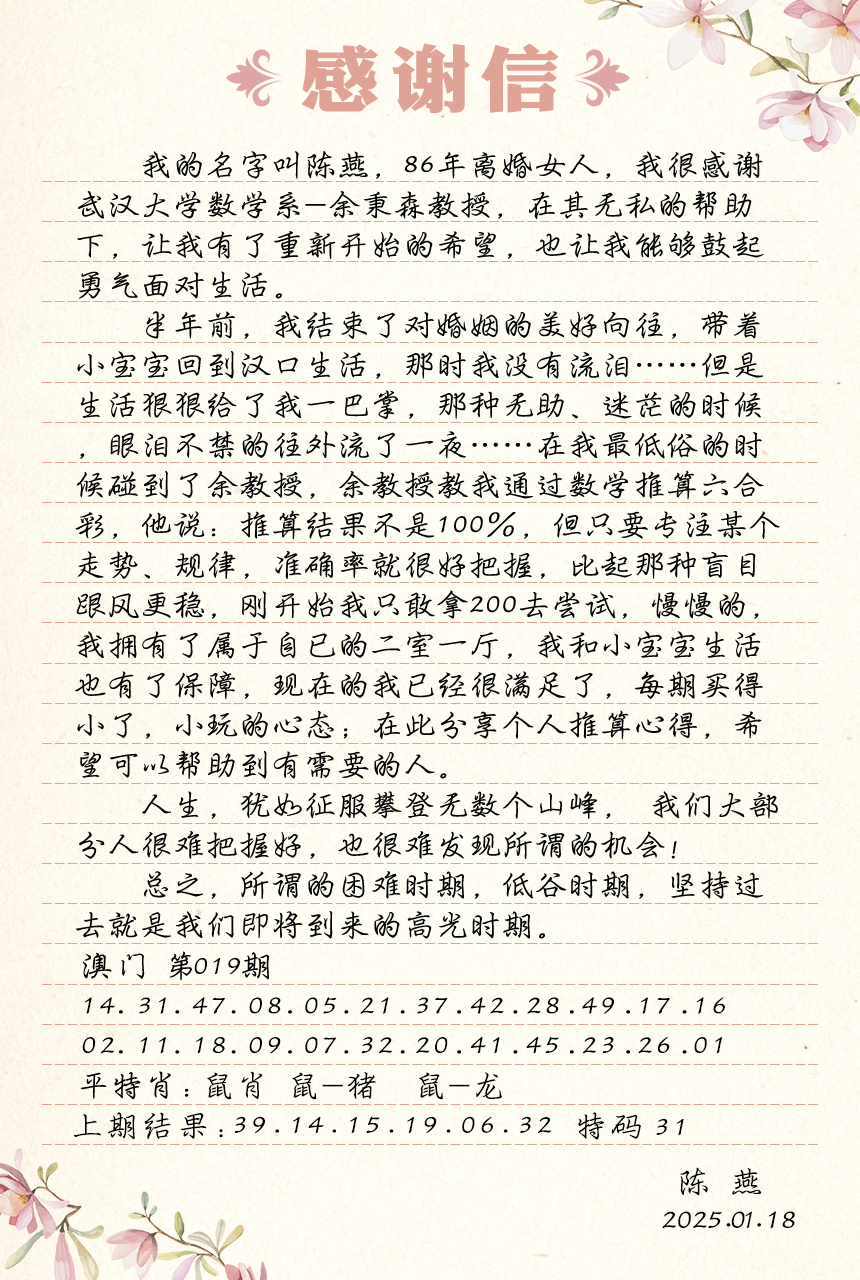 感谢信
我的名字叫陈燕，86年离婚女人，我很感谢
武汉大学数学系—余秉森教授，在其无私的帮助
下，让我有了重新开始的希望，也让我能够鼓起
勇气面对生活。
半年前，我结束了对婚姻的美好向往，带着
小宝宝回到汉口生活，那时我没有流泪……但是
生活狠狠给了我一巴掌，那种无助、迷茫的时候
，眼泪不禁的往外流了一夜……在我最低俗的时
候碰到了余教授，余教授教我通过数学推算六合
彩，他说：推算结果不是100%，但只要专注某个
走势、规律，准确率就很好把握，比起那种盲目
跟风更稳，刚开始我只敢拿200去尝试，慢慢的，
我拥有了属于自已的二室一厅，我和小宝宝生活
也有了保障，现在的我已经很满足了，每期买得
小了，小玩的心态；在此分享个人推算心得，希
望可以帮助到有需要的人。
人生，犹如征服攀登无数个山峰， 我们大部
分人很难把握好，也很难发现所谓的机会！
总之，所谓的困难时期，低谷时期，坚持过
去就是我们即将到来的高光时期。
澳门 第019期
14.31.47.08.05.21.37.42.28.49.17.16
02.11.18.09.07.32.20.41.45.23.26.01
平特肖：鼠肖 鼠—猪 鼠—龙
上期结果：39.14.15.19.06.32 特码 31
陈 燕
2025.01.18